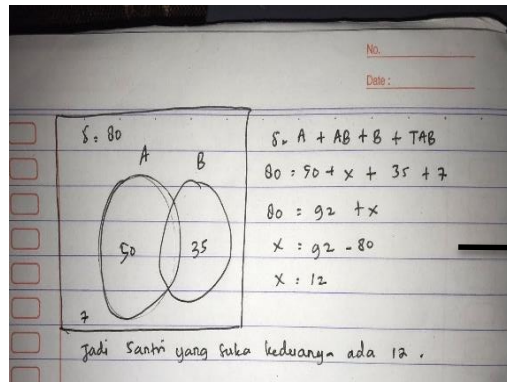 No.
Date:
S: 80
A B
50 35
7
S = A + AB + B + TAB
80 = 50 + x + 35 + 7
80 = 92 + x
x = 92 - 80
x = 12
Jadi santri yang suka keduanya ada 12.